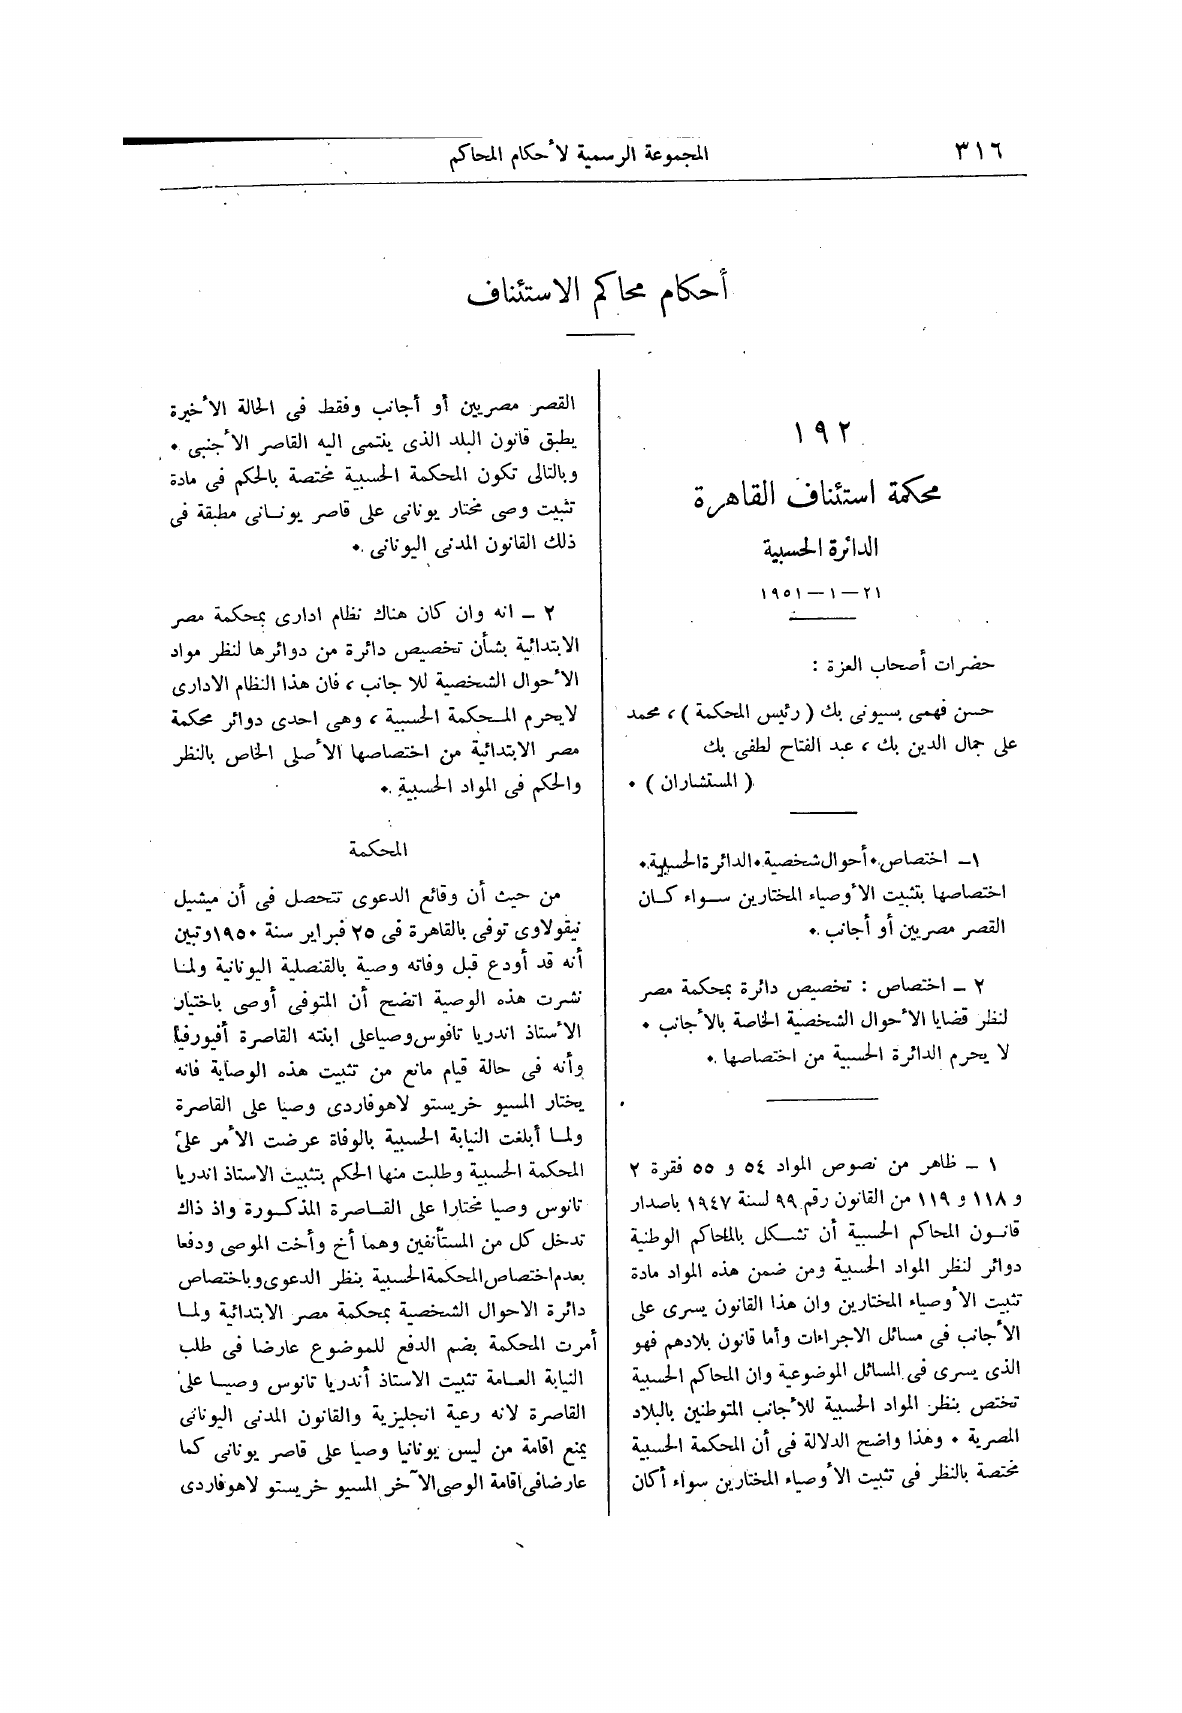 ٣١٦
المجموعة الرسمية لأحكام المحاكم
أحكام محاكم الاستئناف
١٩٢
محكمة استئناف القاهرة
الدائرة الحسبية
٢١ — ١ — ١٩٥١
حضرات أصحاب العزة :
حسن فهمى بسيونى بك ( رئيس المحكمة ) ، محمد
على جمال الدين بك ، عبد الفتاح لطفى بك
( المستشاران ) ٠
١ـ اختصاص ٠ أحوال شخصية ٠ الدائرة الحسبية ٠
اختصاصها بتثبيت الأوصياء المختارين سـواء كـان
القصر مصريين أو أجانب ٠
٢ ـ اختصاص : تخصيص دائرة بمحكمة مصر
لنظر قضايا الأحوال الشخصية الخاصة بالأجانب ٠
لا يحرم الدائرة الحسبية من اختصاصها ٠
١ ـ ظاهر من نصوص المواد ٥٤ و ٥٥ فقرة ٢
و ١١٨ و ١١٩ من القانون رقم ٩٩ لسنة ١٩٤٧ باصدار
قانـون المحاكم الحسبية أن تشـكل بالمحاكم الوطنية
دوائر لنظر المواد الحسبية ومن ضمن هذه المواد مادة
تثبيت الأوصياء المختارين وان هذا القانون يسرى على
الأجانب فى مسائل الاجراءات وأما قانون بلادهم فهو
الذى يسرى فى المسائل الموضوعية وان المحاكم الحسبية
تختص بنظر المواد الحسبية للأجانب المتوطنين بالبلاد
المصرية ٠ وهذا واضح الدلالة فى أن المحكمة الحسبية
مختصة بالنظر فى تثبيت الأوصياء المختارين سواء أكان
القصر مصريين أو أجانب وفقط فى الحالة الأخيرة
يطبق قانون البلد الذى ينتمى اليه القاصر الأجنبى ٠
وبالتالى تكون المحكمة الحسبية مختصة بالحكم فى مادة
تثبيت وصى مختار يونانى على قاصر يونـانى مطبقة فى
ذلك القانون المدنى اليونانى ٠
٢ ـ انه وان كان هناك نظام ادارى بمحكمة مصر
الابتدائية بشأن تخصيص دائرة من دوائرها لنظر مواد
الأحوال الشخصية للاجانب ، فان هذا النظام الادارى
لايحرم المـحكمة الحسبية ، وهى احدى دوائر محكمة
مصر الابتدائية من اختصاصها الأصلى الخاص بالنظر
والحكم فى المواد الحسبية ٠
المحكمة
من حيث أن وقائع الدعوى تتحصل فى أن ميشيل
نيقولاوى توفى بالقاهرة فى ٢٥ فبراير سنة ١٩٥٠ وتبين
أنه قد أودع قبل وفاته وصية بالقنصلية اليونانية ولمـا
نشرت هذه الوصية اتضح أن المتوفى أوصى باختيار
الأستاذ اندريا تافوس وصيا على ابنته القاصرة أفيورفيا
وأنه فى حالة قيام مانع من تثبيت هذه الوصاية فانه
يختار المسيو خريستو لاهوفاردى وصيا على القاصرة
ولمـا أبلغت النيابة الحسبية بالوفاة عرضت الأمر على
المحكمة الحسبية وطلبت منها الحكم بتثبيت الاستاذ اندريا
تانوس وصيا مختارا على القـاصرة المذكـورة واذ ذاك
تدخل كل من المستأنفين وهما أخ وأخت الموصى ودفعا
بعدم اختصاص المحكمة الحسبية بنظر الدعوى وباختصاص
دائرة الاحوال الشخصية بمحكمة مصر الابتدائية ولمـا
أمرت المحكمة بضم الدفع للموضوع عارضا فى طلب
النيابة العـامة تثبيت الاستاذ أندريا تانوس وصيـا على
القاصرة لانه رعية انجليزية والقانون المدنى اليونانى
يمنع اقامة من ليس يونانيا وصيا على قاصر يونانى كما
عارضا فى اقامة الوصى الآخر المسيو خريستو لاهوفاردى